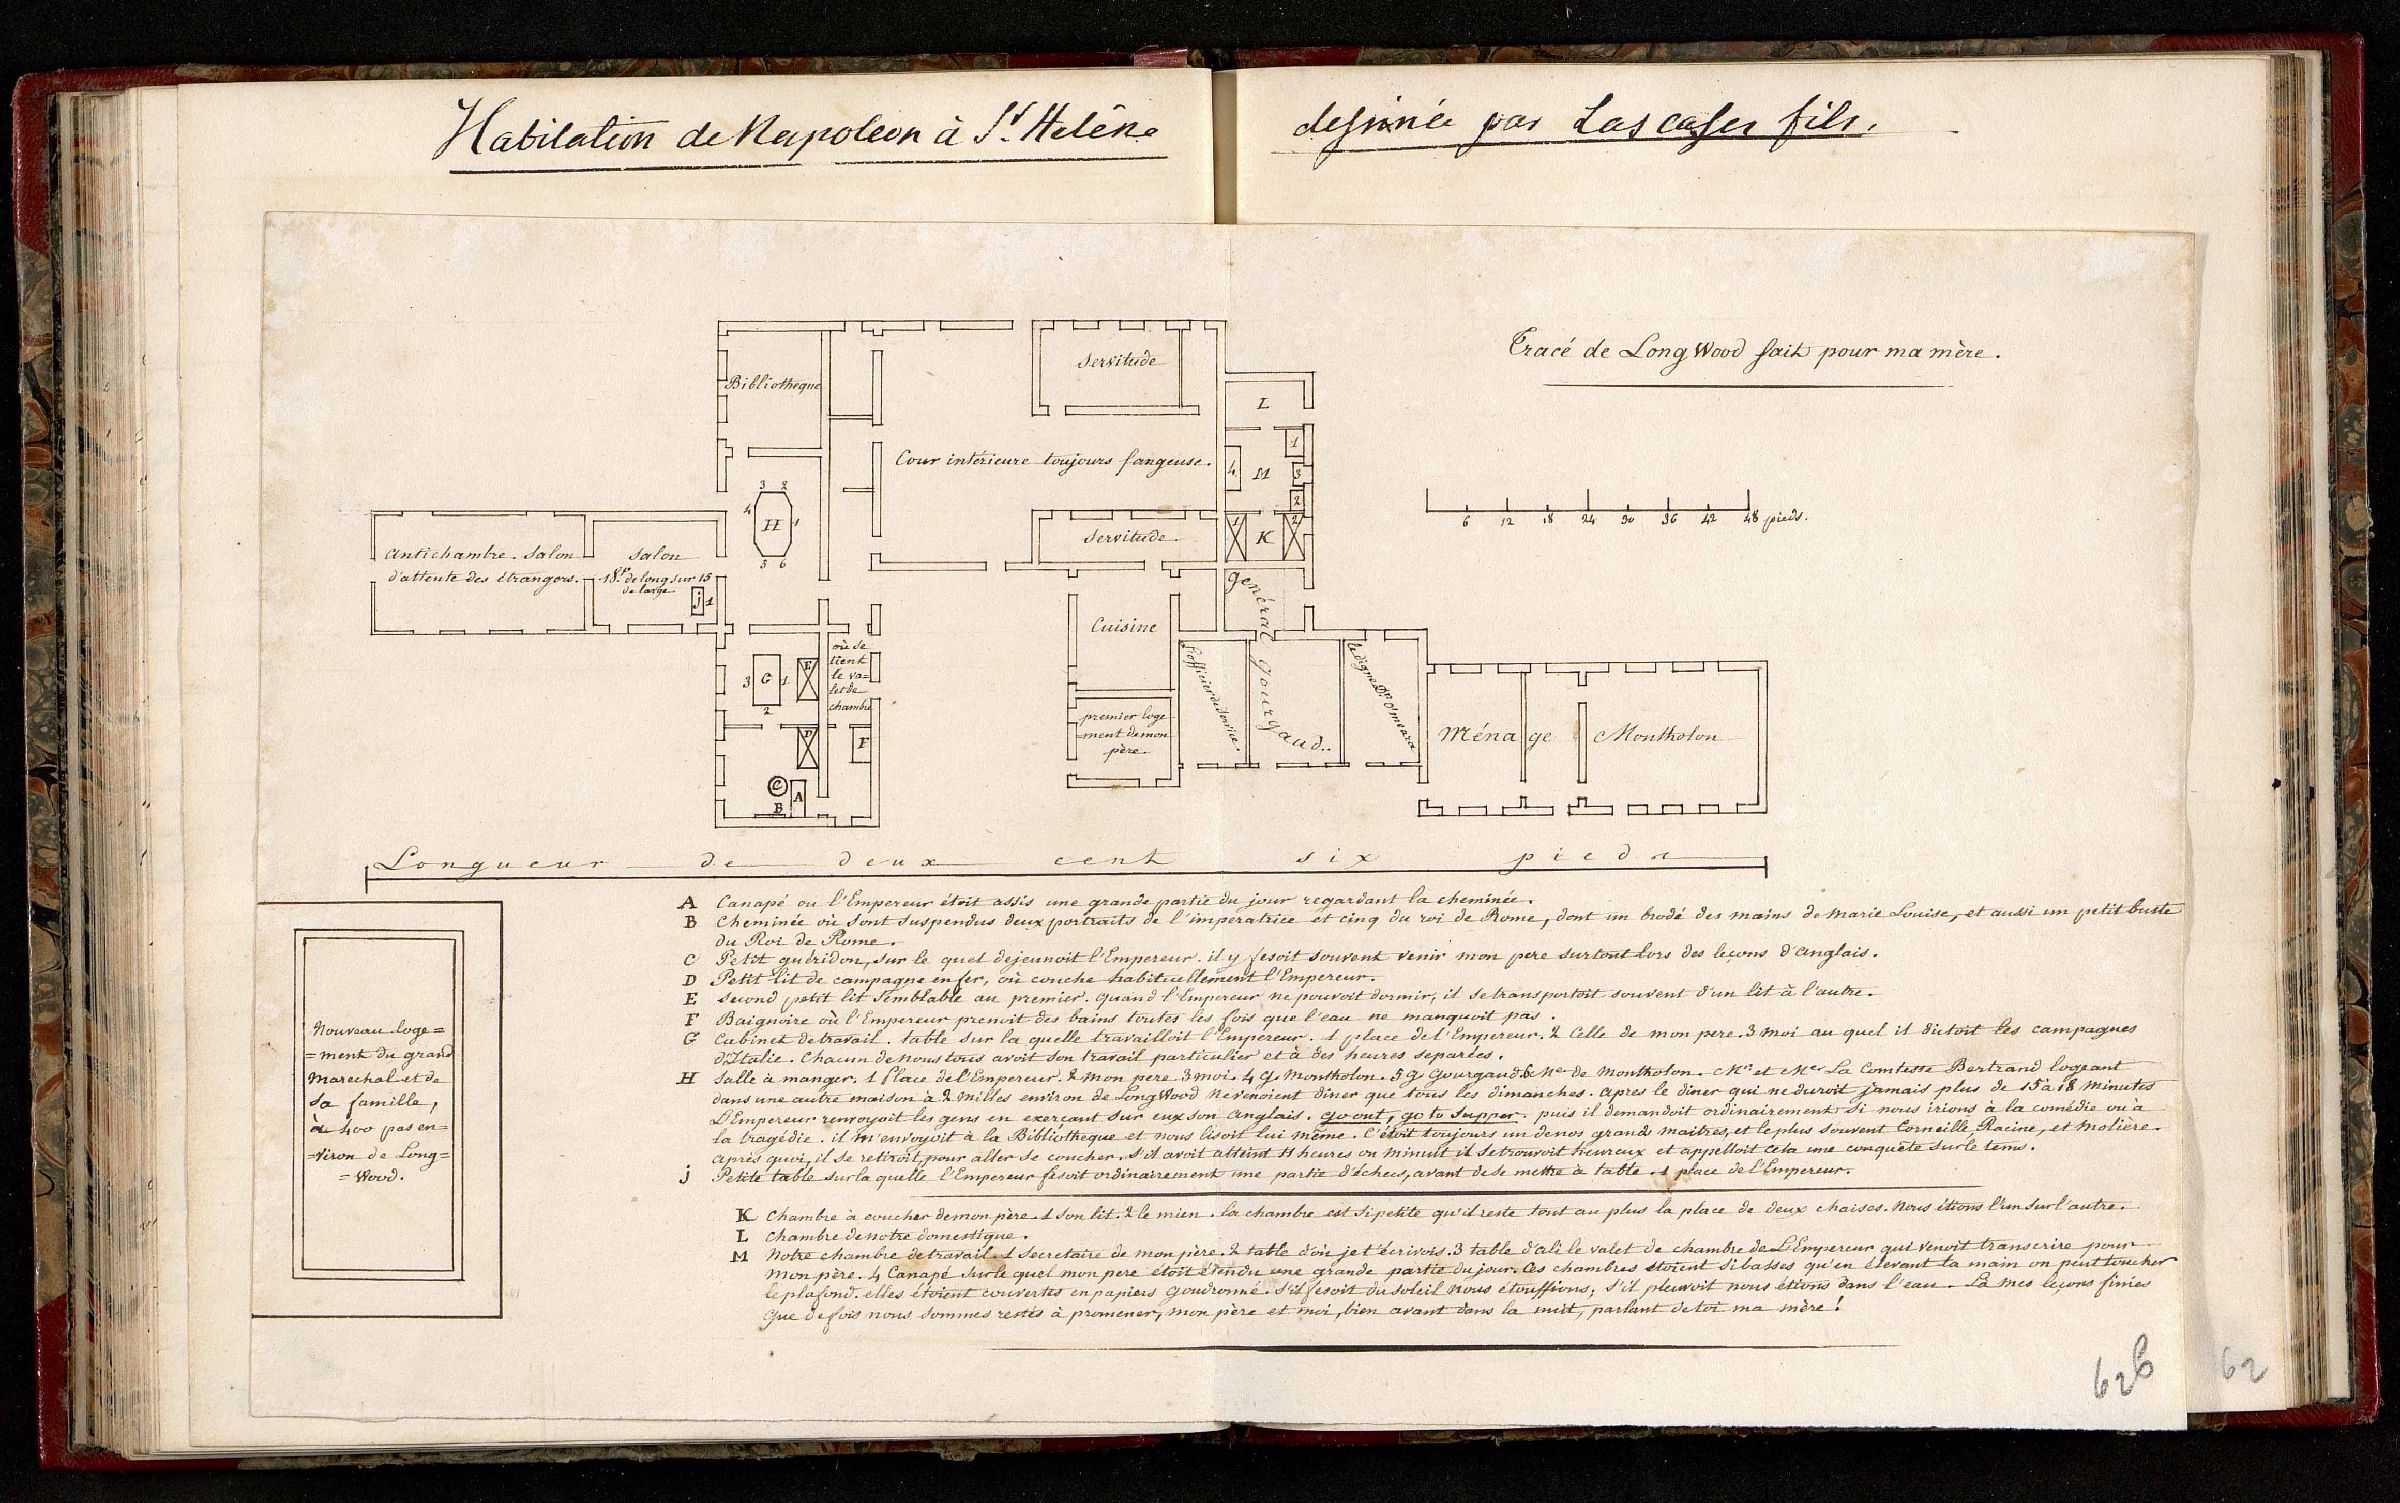 Habitation de Napoleon à St. Helène dessinée par Las cases fils.
Tracé de Long Wood fait pour ma mère.
Bibliotheque
Servitude
L
1
Cour intérieure toujours fangeuse.
4 M 3
2
3 2
4 H 1
5 6
6 12 18 24 30 36 42 48 pieds.
Servitude
1 K 2
Antichambre. Salon
d'attente des étrangers.
Salon
18 P. de long sur 15
de large
j 1
Général Gourgaud.
Cuisine
où se
tient
le va=
let de
chambre
3 G 1
2
E
l'officier de service.
le digne Dr. O'meara
premier loge
=ment de mon
père
Ménage Montholon
D
F
C
B A
Longueur de deux cent six pieds
Nouveau loge=
=ment du grand
Marechal et de
sa famille,
à 400 pas en=
=viron de Long=
=Wood.
A Canapé ou l'Empereur étoit assis une grande partie du jour regardant la cheminée.
B Cheminée où sont suspendus deux portraits de l'impératrice et cinq du roi de Rome, dont un brodé des mains de Marie Louise, et aussi un petit buste
du Roi de Rome.
C Petit guéridon, sur le quel dejeunoit l'Empereur. il y fesoit souvent venir mon pere surtout lors des leçons d'anglais.
D Petit lit de campagne en fer, où couche habituellement l'Empereur.
E Second petit lit semblable au premier. quand l'Empereur ne pouvoit dormir, il se transportoit souvent d'un lit à l'autre.
F Baignoire où l'Empereur prenoit des bains toutes les fois que l'eau ne manquoit pas.
G Cabinet de travail. table sur la quelle travailloit l'Empereur. 1 place de l'Empereur. 2 Celle de mon pere. 3 moi au quel il dictoit les campagnes
d'Italie. Chacun de nous tous avoit son travail particulier et à des heures separées.
H Salle à manger. 1 Place de l'Empereur. 2 mon pere. 3 moi. 4 Gl. Montholon. 5 Gl. Gourgaud. 6 Me. de Montholon. Mr. et Me. La Comtesse Bertrand logeant
dans une autre maison à 2 milles environ de Long Wood ne venoient diner que tous les dimanches. après le diner qui ne duroit jamais plus de 15 à 18 minutes
L'Empereur renvoyoit les gens en exerçant sur eux son anglais. go out, go to supper. puis il demandoit ordinairement si nous irions à la comédie ou à
la tragédie. il m'envoyoit à la Bibliotheque et nous lisoit lui même. C'étoit toujours un de nos grands maitres, et le plus souvent Corneille Racine, et Molière.
après quoi, il se retiroit, pour aller se coucher. s'il avoit atteint 11 heures ou minuit il se trouvoit heureux et appelloit cela une conquête sur le tems.
j Petite table sur la quelle l'Empereur fesoit ordinairement une partie d'échecs, avant de se mettre à table. 1 place de l'Empereur.
K Chambre à coucher de mon père. 1 son lit. 2 le mien. la chambre est si petite qu'il reste tout au plus la place de deux chaises. Nous étions l'un sur l'autre.
L Chambre de notre domestique.
M Notre chambre de travail. 1 Secretaire de mon père. 2 table d'où je t'écrivois. 3 table d'ali le valet de chambre de L'Empereur qui venoit transcrire pour
mon père. 4 Canapé sur le quel mon pere étoit étendu une grande partie du jour. Ces chambres etoient si basses qu'en élevant la main on peut toucher
le plafond. elles étoient couvertes en papiers goudronné. s'il fesoit du soleil nous étouffions; s'il pleuvoit nous étions dans l'eau. Là mes leçons finies
que de fois nous sommes restés à promener, mon père et moi, bien avant dans la nuit, parlant de toi ma mère!
62b 62